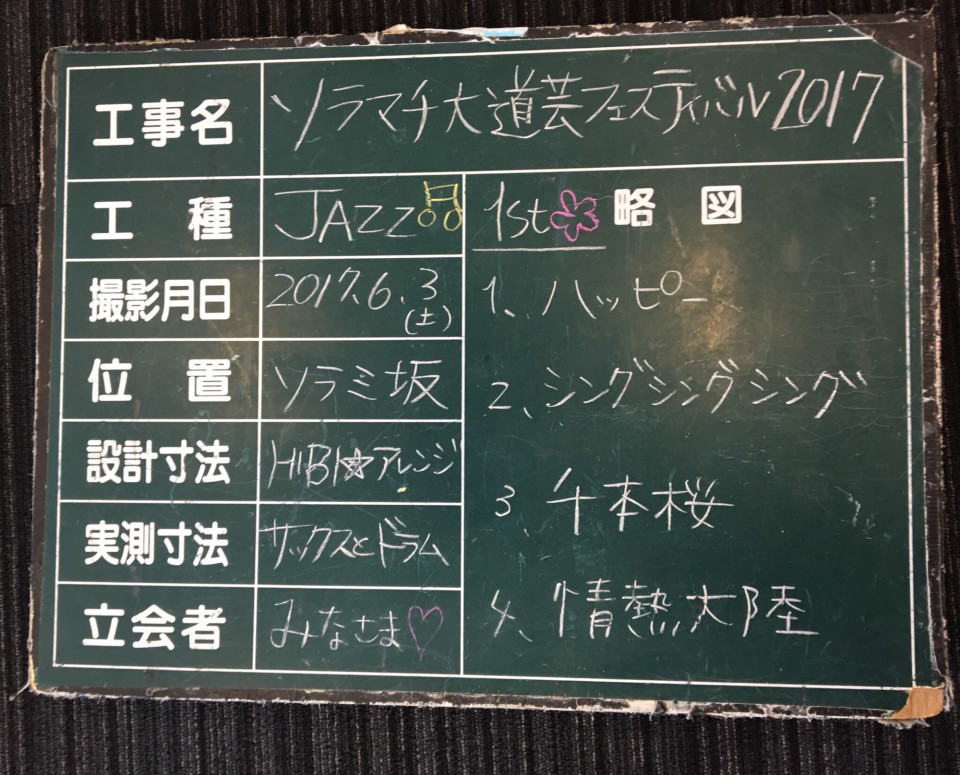 工事名 ソラマチ大道芸フェスティバル2017
工種 JAZZ
撮影月日 2017.6.3(土)
位置 ソラミ坂
設計寸法 HIBI☆アレンジ
実測寸法 サックスとドラム
立会者 みなさま♡
1st 略図
1、ハッピー
2、シングシングシング
3、千本桜
4、情熱大陸